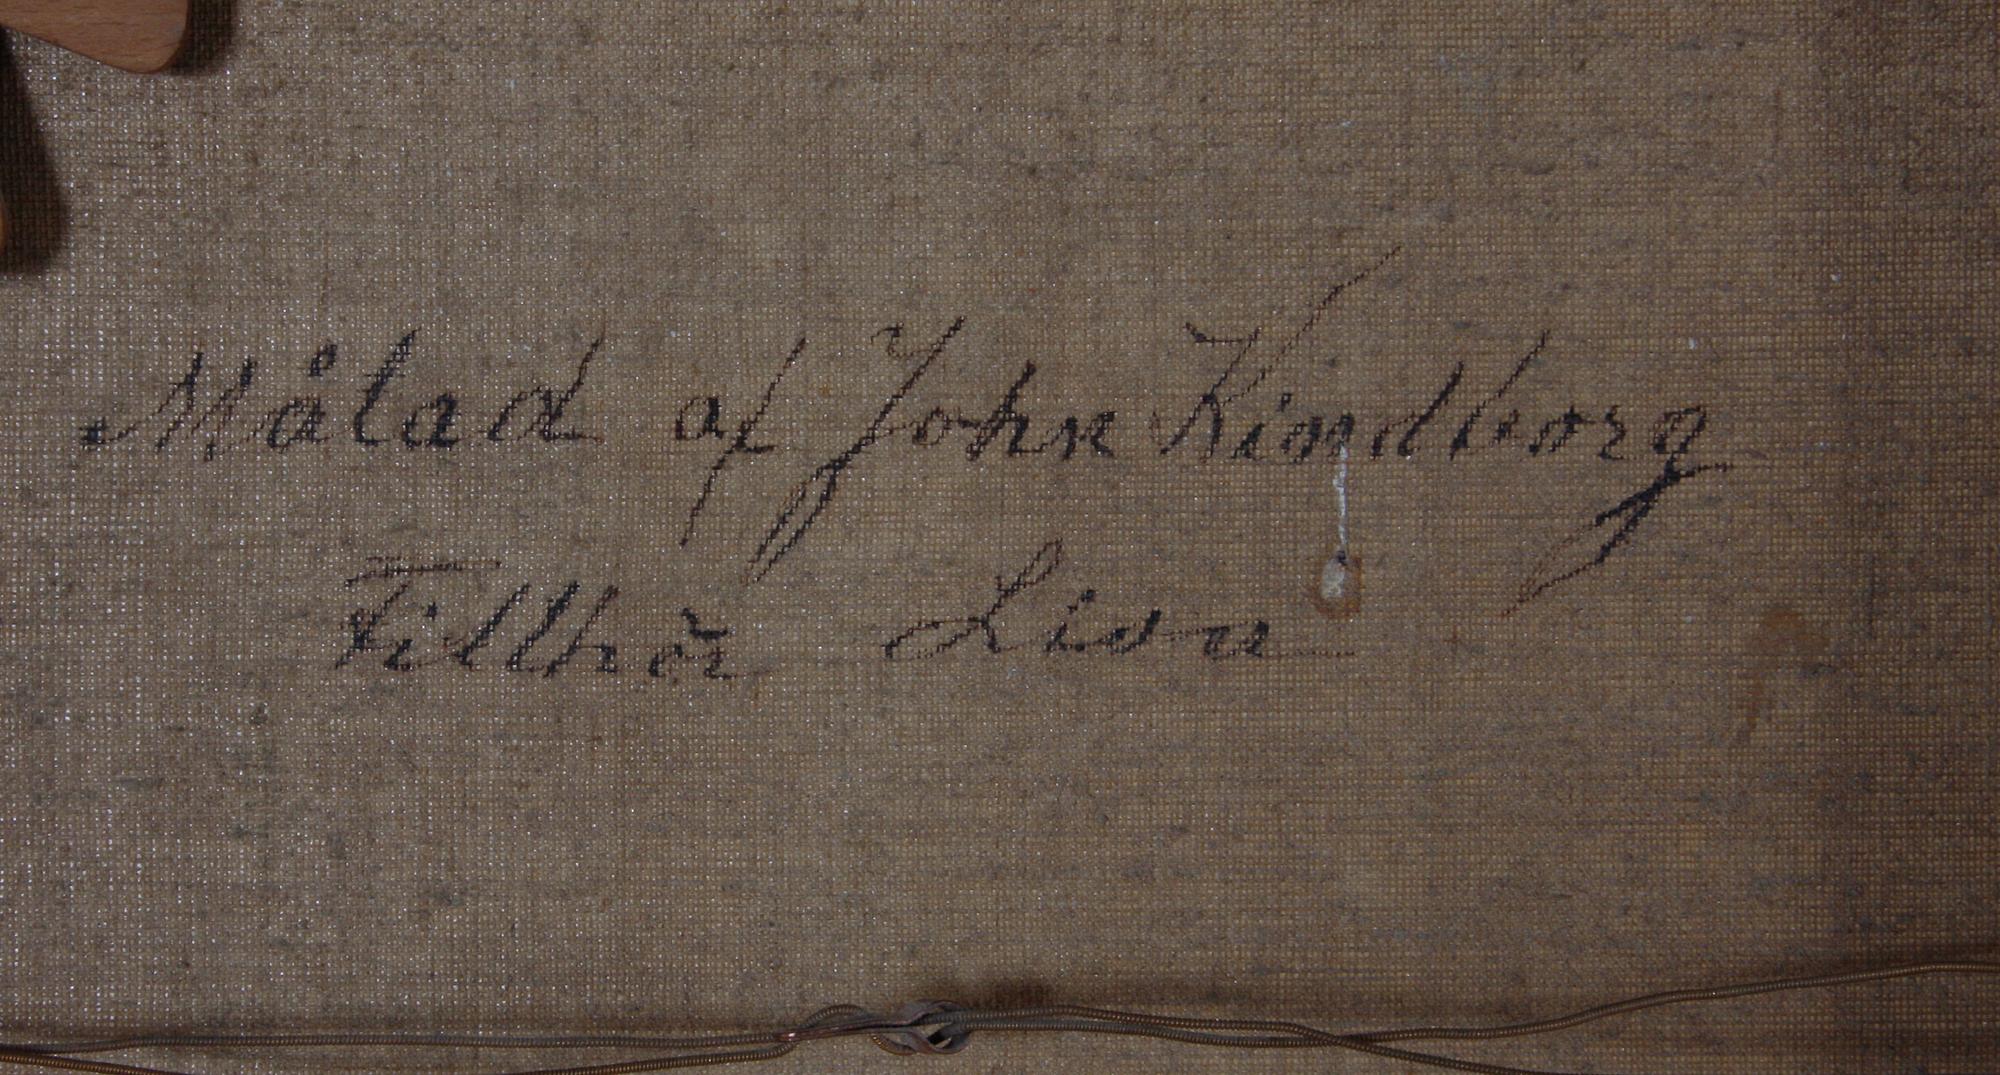 Målad af John Kindborg
Tillhör Lisa